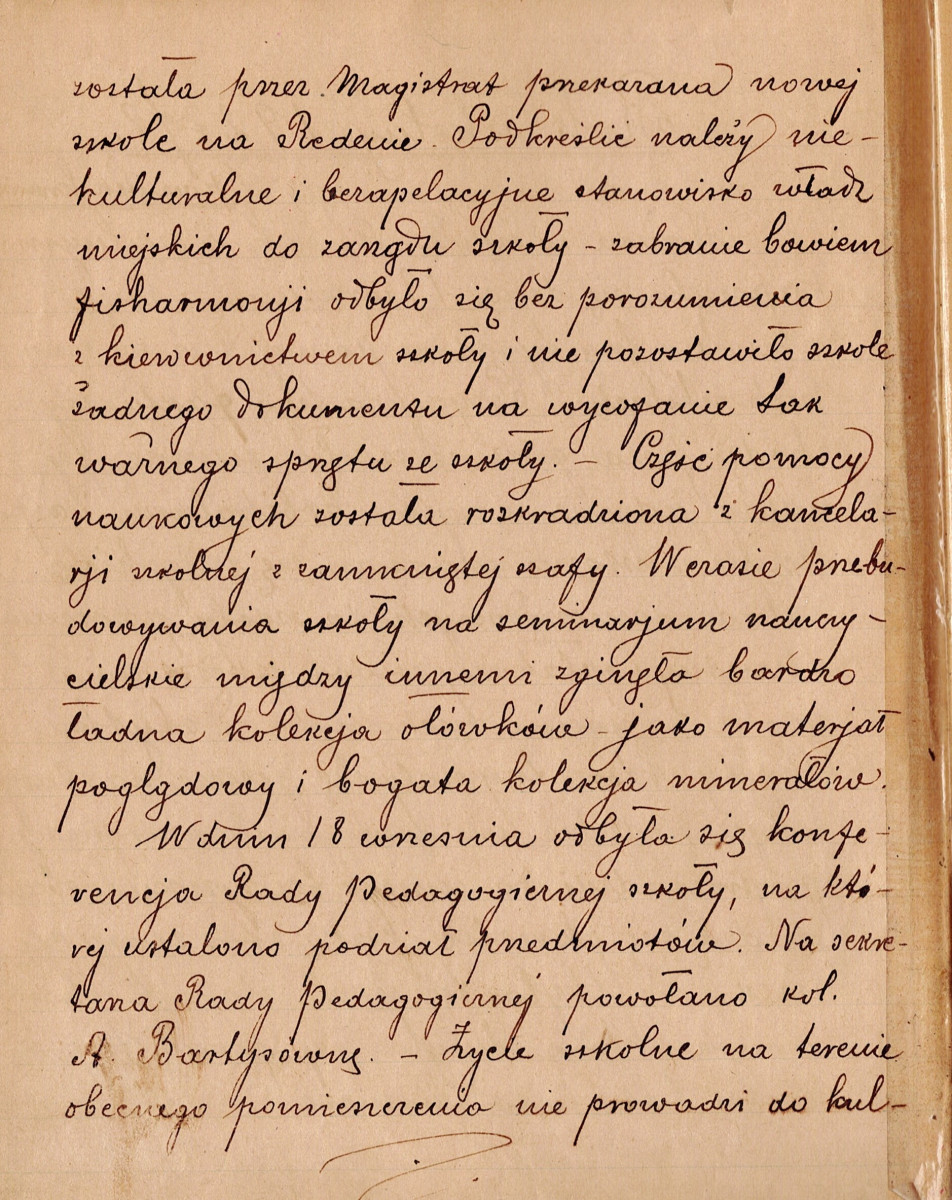 została przez Magistrat przekazana nowej
szkole na Redenie. Podkreślić należy nie-
kulturalne i bezapelacyjne stanowisko władz
miejskich do zarządu szkoły – zabranie bowiem
fisharmonji odbyło się bez porozumienia
z kierownictwem szkoły i nie pozostawiło szkole
żadnego dokumentu na wycofanie tak
ważnego sprzętu ze szkoły. – Część pomocy
naukowych została rozkradziona z kancela-
rji szkolnej z zamkniętej szafy. W czasie przebu-
dowywania szkoły na seminarjum nauczy-
cielskie między innemi zginęła bardzo
ładna kolekcja ołówków – jako materjał
poglądowy i bogata kolekcja minerałów.
W dniu 18 września odbyła się konfe-
rencja Rady Pedagogicznej szkoły, na któ-
rej ustalono podział przedmiotów. Na sekre-
tarza Rady Pedagogicznej powołano kol.
A. Bartysównę. – Życie szkolne na terenie
obecnego pomieszczenia nie prowadzi do kul-